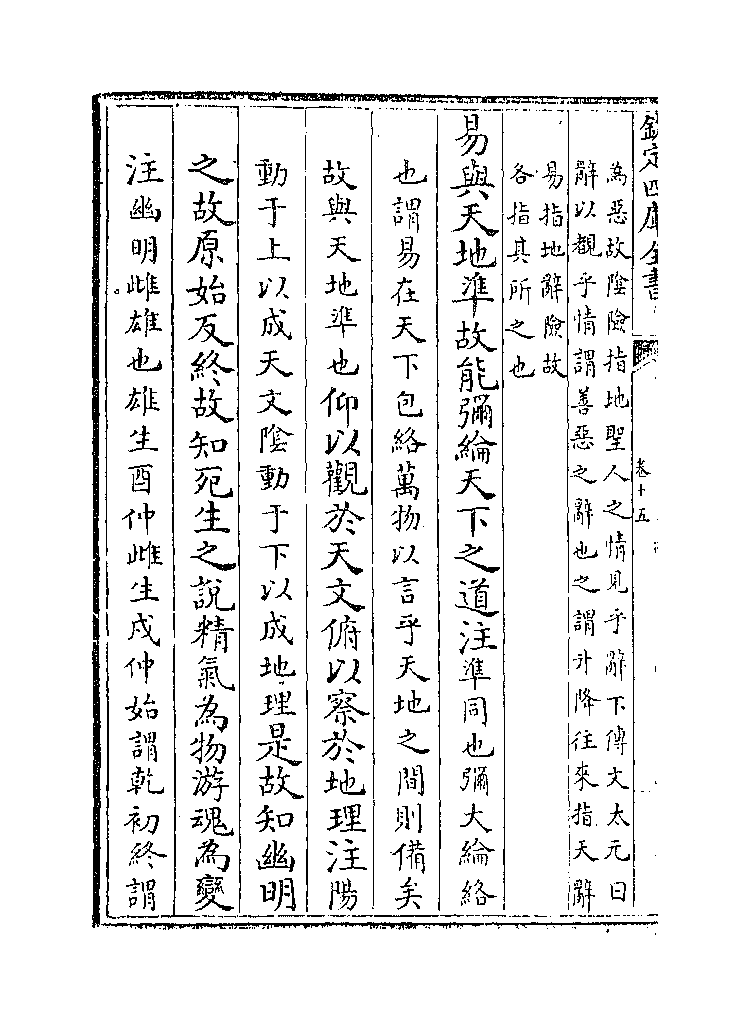 欽定四庫全書
卷十五
為惡故陰險指地聖人之情見乎辭下傳文太元曰
辭以觀乎情謂善惡之辭也之謂升降往來指天辭
易指地辭險故
各指其所之也
易與天地準故能彌綸天下之道注準同也彌大綸絡
也謂易在天下包絡萬物以言乎天地之間則備矣
故與天地準也仰以觀於天文俯以察於地理注陽
動于上以成天文陰動于下以成地理是故知幽明
之故原始反終故知死生之說精氣為物游魂為變
注幽明雌雄也雄生酉仲雌生戌仲始謂乾初終謂